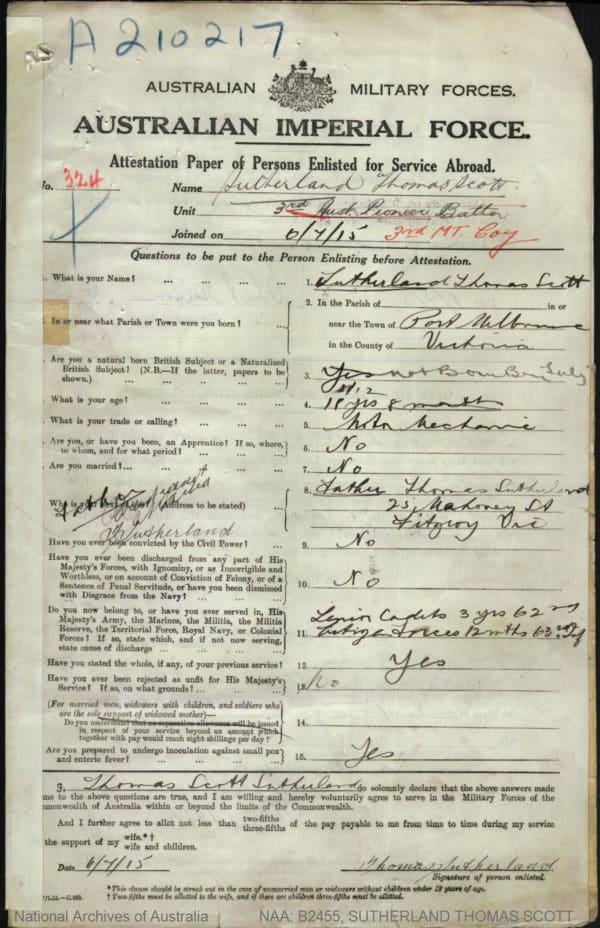 A210217
AUSTRALIAN MILITARY FORCES.
AUSTRALIAN IMPERIAL FORCE.
Attestation Paper of Persons Enlisted for Service Abroad.
No. 324 Name Sutherland Thomas Scott
Unit 3rd Aust Pioneer Battn
Joined on 6/7/15 3rd MT. Coy
Questions to be put to the Person Enlisting before Attestation.
1. What is your Name? ... 1. Sutherland Thomas Scott
2. In or near what Parish or Town were you born? ... 2. In the Parish of in or
near the Town of Port Melbourne
in the County of Victoria
Are you a natural born British Subject or a Naturalised
British Subject? (N.B.—If the latter, papers to be
shown.) ... 3. Yes
What is your age? ... 4. 18 yrs 8 months
What is your trade or calling? ... 5. Motor Mechanic
Are you, or have you been, an Apprentice? If so, where,
to whom, and for what period? ... 6. No
Are you married? ... 7. No
Who is your (Address to be stated) 8. Father Thomas Sutherland
25 Mahoney St
Fitzroy Vic
Father
Sutherland
Have you ever been convicted by the Civil Power? ... 9. No
Have you ever been discharged from any part of His
Majesty's Forces, with Ignominy, or as Incorrigible and
Worthless, or on account of Conviction of Felony, or of a
Sentence of Penal Servitude, or have you been dismissed
with Disgrace from the Navy? ... 10. No
Do you now belong to, or have you ever served in, His
Majesty's Army, the Marines, the Militia, the Militia
Reserve, the Territorial Force, Royal Navy, or Colonial
Forces? If so, state which, and if not now serving,
state cause of discharge ... 11. Senior Cadets 3 yrs 62
Citizen Forces 12 mths 63
Have you stated the whole, if any, of your previous service? 12. Yes
Have you ever been rejected as unfit for His Majesty's
Service? If so, on what grounds? ... 13. No
(For married men, widowers with children, and soldiers who
are the sole support of widowed mother)—
Do you understand that no separation allowance will be issued
in respect of your service beyond an amount which
together with pay would reach eight shillings per day? 14.
Are you prepared to undergo inoculation against small pox
and enteric fever? ... 15. Yes
I, Thomas Scott Sutherland do solemnly declare that the above answers made
me to the above questions are true, and I am willing and hereby voluntarily agree to serve in the Military Forces of the
mmonwealth of Australia within or beyond the limits of the Commonwealth.
And I further agree to allot not less than two-fifths three-fifths of the pay payable to me from time to time during my service
the support of my wife.*† wife and children.
Date 6/7/15 Thomas Sutherland
Signature of person enlisted.
*This clause should be struck out in the case of unmarried men or widowers without children under 18 years of age.
†Two-fifths must be allotted to the wife, and if there are children three-fifths must be allotted.
National Archives of Australia NAA: B2455, SUTHERLAND THOMAS SCOTT